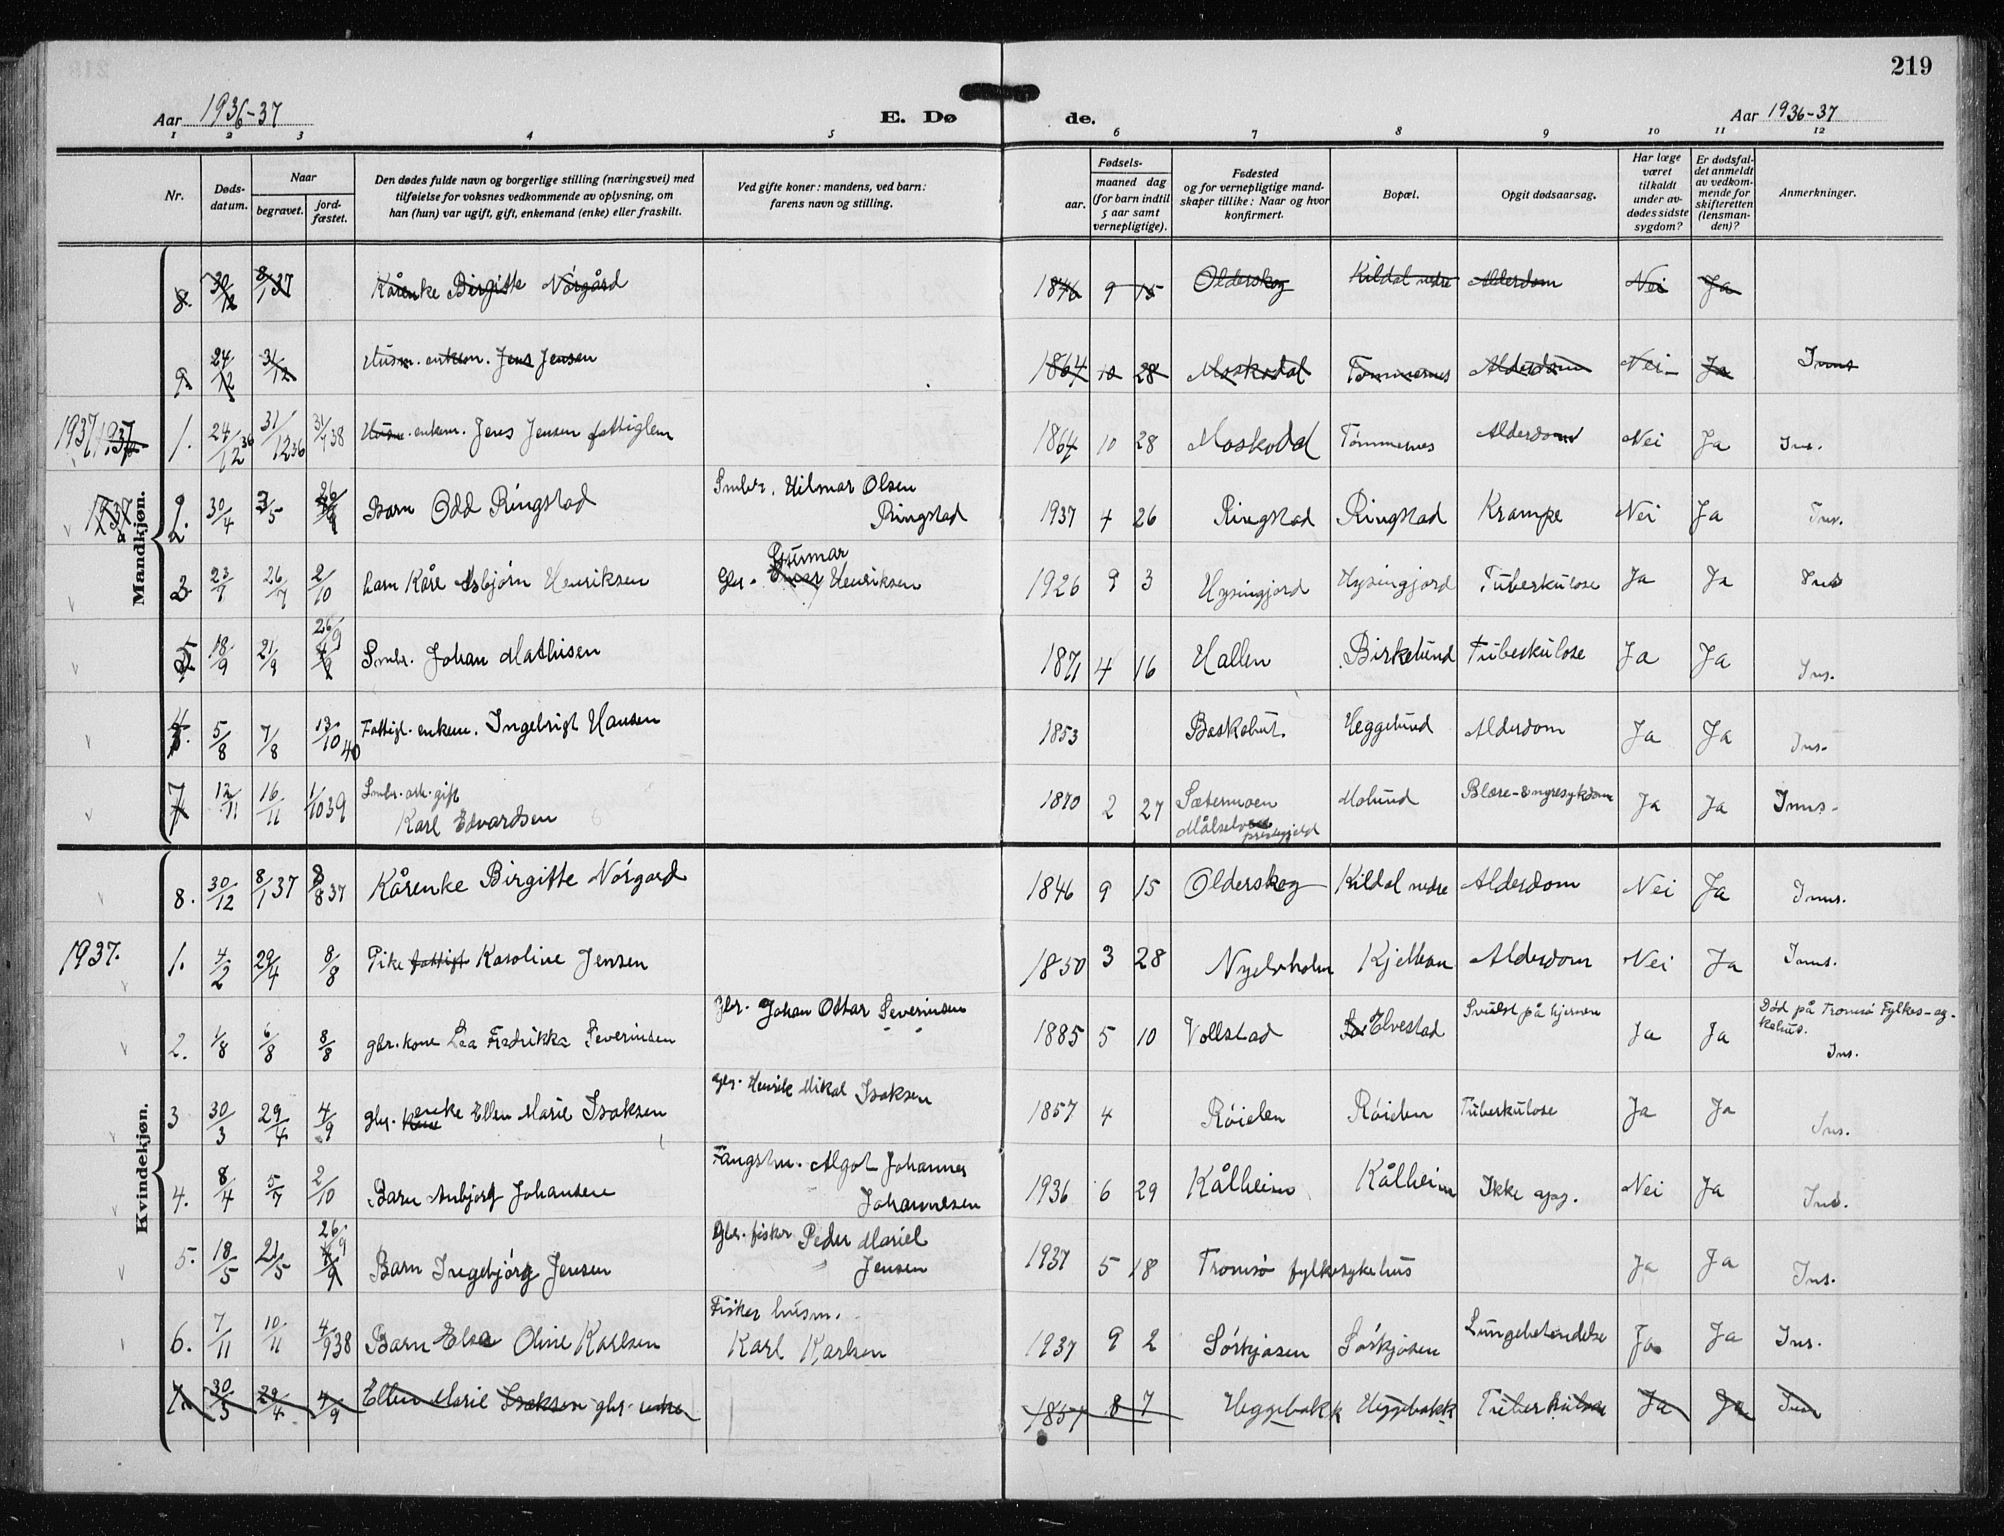 219
Aar 1936-37
E. Dø
de.
Aar 1936-37
1 2 3 4 5 6 7 8 9 10 11 12
Nr.
Døds-
datum.
Naar
begravet.
jord-
fæstet.
Den dødes fulde navn og borgerlige stilling (næringsvei) med
tilføielse for voksnes vedkommende av oplysning, om
han (hun) var ugift, gift, enkemand (enke) eller fraskilt.
Ved gifte koner: mandens, ved barn:
farens navn og stilling.
Fødsels-
aar.
maaned dag
(for barn indtil
5 aar samt
vernepligtige).
Fødested
og for vernepligtige mand-
skaper tillike: Naar og hvor
konfirmert.
Bopæl.
Opgit dødsaarsag.
Har læge
været
tilkaldt
under av-
dødes sidste
sygdom?
Er dødsfal-
det anmeldt
av vedkom-
mende for
skifteretten
(lensman-
den)?
Anmerkninger.
Mandkjøn.
8. 30/12 8/1 37 Kårenke Birgitte Nórgård 1846 9 15 Olderskog Kildal nedre Alderdom Nei Ja
9. 24/12 31/12 Husm. enkem. Jens Jensen 1864 10 28 Moskodal Tømmernes Alderdom Nei Ja Inns
1937 1937 1. 24/12 36 31/12 36 31/7 38 Husm. enkem. Jens Jensen fattiglem 1864 10 28 Moskodal Tømmernes Alderdom Nei Ja Ins.
1937 2. 30/4 3/5 26/9 Barn Odd Ringstad Smbr. Hilmar Olsen
Ringstad 1937 4 26 Ringstad Ringstad Krampe Nei Ja Ins.
23/7 26/7 2/10 barn Kåre Asbjørn Henriksen Gbr. Gunnar Henriksen 1926 9 3 Hysingjord Hysingjord Tuberkulose Ja Ja Ins
5. 18/9 21/9 26/9 Smbr. Johan Mathisen 1871 4 16 Hallen Birkelund Tuberkulose Ja Ja Ins.
4. 5/8 7/8 13/10 40 Fattigl. enkem. Ingebrigt Hansen 1853 Heggelund Alderdom Ja Ja Ins.
7 12/11 16/11 1/10 39 Smbr. arb. gift
Karl Edvardsen 1870 2 27 Sætermoen
Målselv
prestegjeld Molund Blære- &nyresykdom Ja Ja Inns.
Kvindekjøn.
8. 30/12 8/1 37 8/8 37 Kårenke Birgitte Nórgard 1846 9 15 Olderskog Kildal nedre Alderdom Nei Ja Inns.
1937. 1. 4/2 29/4 8/8 Pike fattigl Karoline Jensen 1850 3 28 Nyelvholm Kjelleren Alderdom Nei Ja Inns.
2. 1/8 6/8 8/8 gbr. kone Lea Fredrikka Severinsen Gbr. Johan Ottar Severinsen 1885 5 10 Vollstad Elvestad Svulst på hjernen Ja Ja Død på Tromsø Fylkes-sy-
kehus.
Ins.
3 30/3 29/4 4/9 gbr. kone enke Ellen Marie Isaksen gbr. Henrik Mikal Isaksen 1857 4 Røielen Røielen Tuberkulose Ja Ja Ins.
4. 8/4 5/7 2/10 Barn Anbjørg Johansen Fangstm. Algot Johannes
Johannesen 1936 6 29 Kålheim Kålheim Ikke opg. Nei Ja Ins.
5. 18/5 21/5 26/9 Barn Ingebjørg Jensen Gbr. fisker Peder Mariel
Jensen 1937 5 18 Tromsø fylkesykehus Ja Ja Ins.
6. 7/11 10/11 4/9 38 Barn Elsa Oline Karlsen Fisker husm.
Karl Karlsen 1937 9 2 Sørkjosen Sørkjosen Lungebetendelse Ja Ja Ins.
7. 30/3 29/4 4/9 Ellen Marie Isaksen gbr. enke 1857 8 7 Heggebakk Heggebakk Tuberkulose Ja Ja Ins